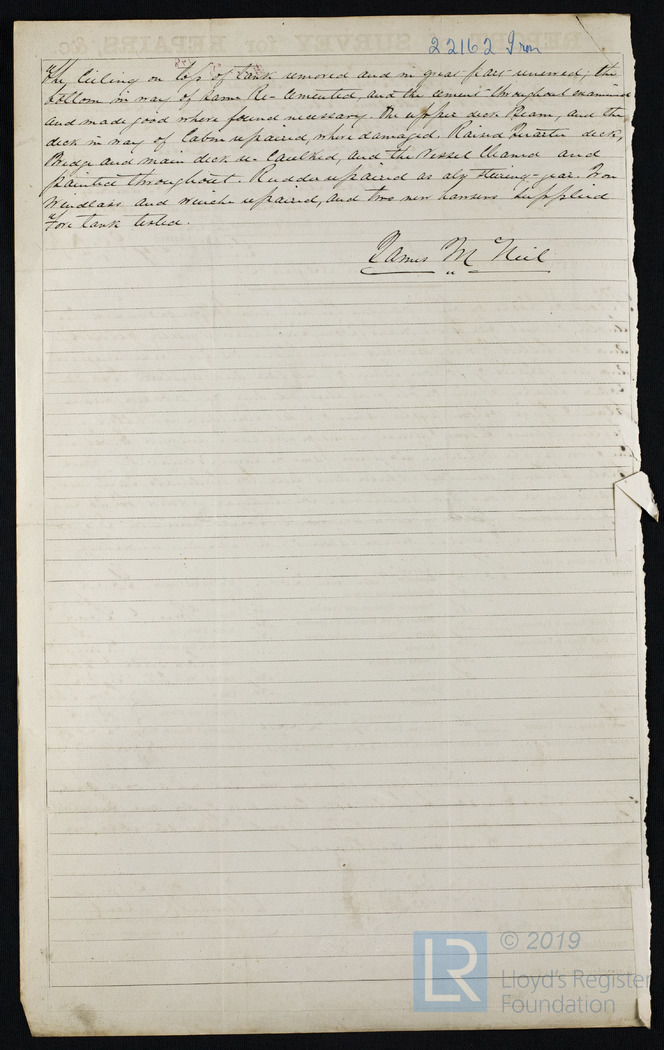 22162 Iron
The Ceiling on top of tank removed and in great part renewed; the
bottom in way of same Re-Cemented, and the cement throughout examined
and made good where found necessary. The upper deck Beam, and the
deck in way of Cabin repaired, where damaged. Raised Quarter deck,
Bridge and main deck re-Caulked, and the Vessel Cleaned and
painted throughout. Rudder repaired as also Steering-gear. Iron
Windlass and winches repaired, and two new hawsers Supplied
Fore tank tested.
James McNeil
© 2019
LR
Lloyd's Register
Foundation